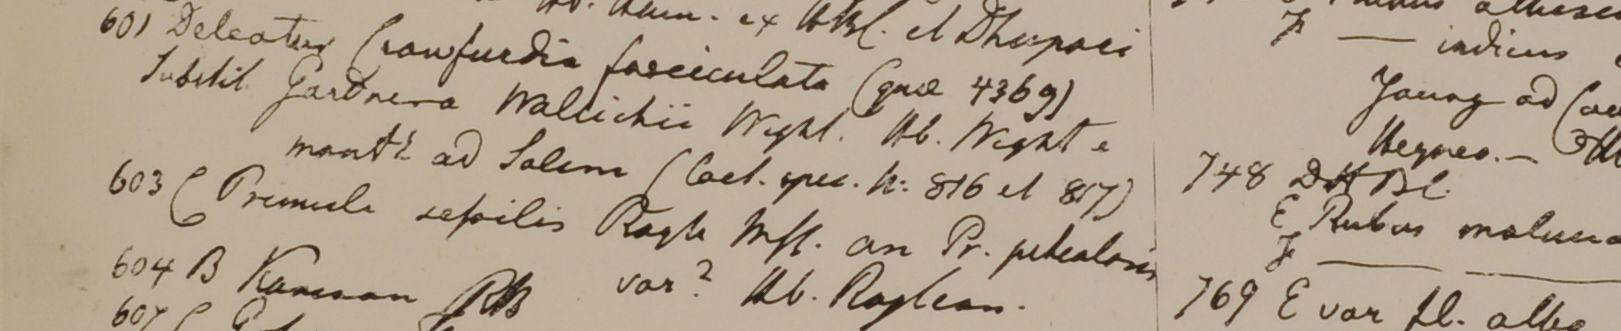 Hb. Ham. ex HBC. et Dhupaci
601 Deleatur Crawfurdia fasciculata (quæ 4369)
Substit. Gardneria Wallichii Wight. Hb. Wight e
montᵇ ad Salem (Cat. spec. n: 816 et 817)
603 C Primula sessilis Royle Mss. an Pr. petiolaris
var? Hb. Roylean.
604 B Kamaon RB
607 C
F — indicus
Young ad
Heyneo. —
748 D HBC.
E Rubus
F —
769 E var fl. albo